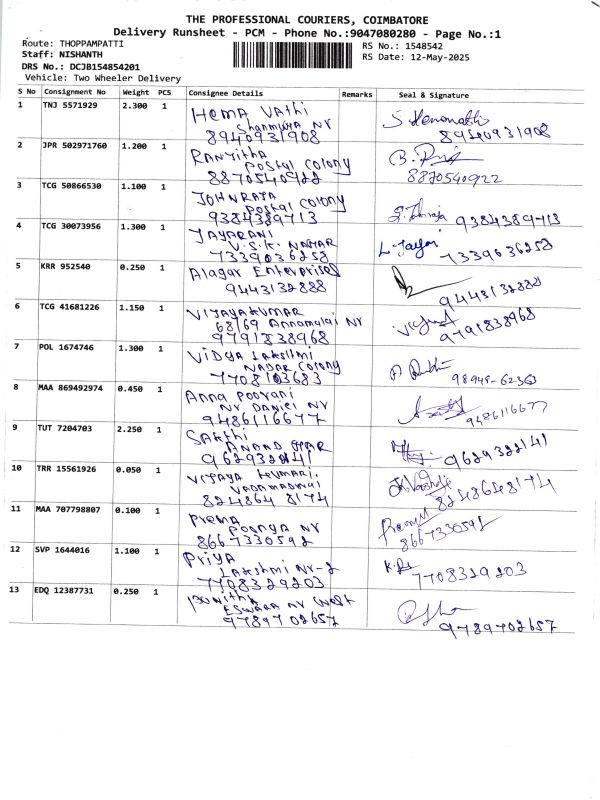 THE PROFESSIONAL COURIERS, COIMBATORE
Delivery Runsheet - PCM - Phone No.:9047080280 - Page No.:1
Route: THOPPAMPATTI
Staff: NISHANTH
DRS No.: DCJB154854201
Vehicle: Two Wheeler Delivery
RS No.: 1548542
RS Date: 12-May-2025
S No Consignment No Weight PCS Consignee Details Remarks Seal & Signature
1 TNJ 5571929 2.300 1 HEMA VATHI
Shanmuga NR
8940931908 8940931908
2 JPR 502971760 1.200 1 RANJITHA
POSTAL COLONY
8870540922 8870540922
3 TCG 50866530 1.100 1 JOHNRAJA
POSTAL COLONY
9384389713 9384389713
4 TCG 30073956 1.300 1 JAYARANI
V.S.K. NAGAR
7339036258 7339036258
5 KRR 952540 0.250 1 Alagar Enterprises
9443132888 9443132888
6 TCG 41681226 1.150 1 VIJAYAKUMAR
68/69 Annamalai NR
9791838968 9791838968
7 POL 1674746 1.300 1 VIDYA LAKSHMI
NADAR COLONY
7708103683
8 MAA 869492974 0.450 1 Anna Poorani
NR DANIEL NR
9486116677 9486116677
9 TUT 7204703 2.250 1 SAKTHI
ANAND
9629322141 9629322141
10 TRR 15561926 0.050 1 VIJAYA KUMARI.
VADAMADURAI
824864 8174 8248648174
11 MAA 707798807 0.100 1 PREMA
POONGA NR
8667330592 8667330592
12 SVP 1644016 1.100 1 PRIYA
LAKSHMI NR-2
7708329203 7708329203
13 EDQ 12387731 0.250 1
ESWARA NR
9789702657 9789702657